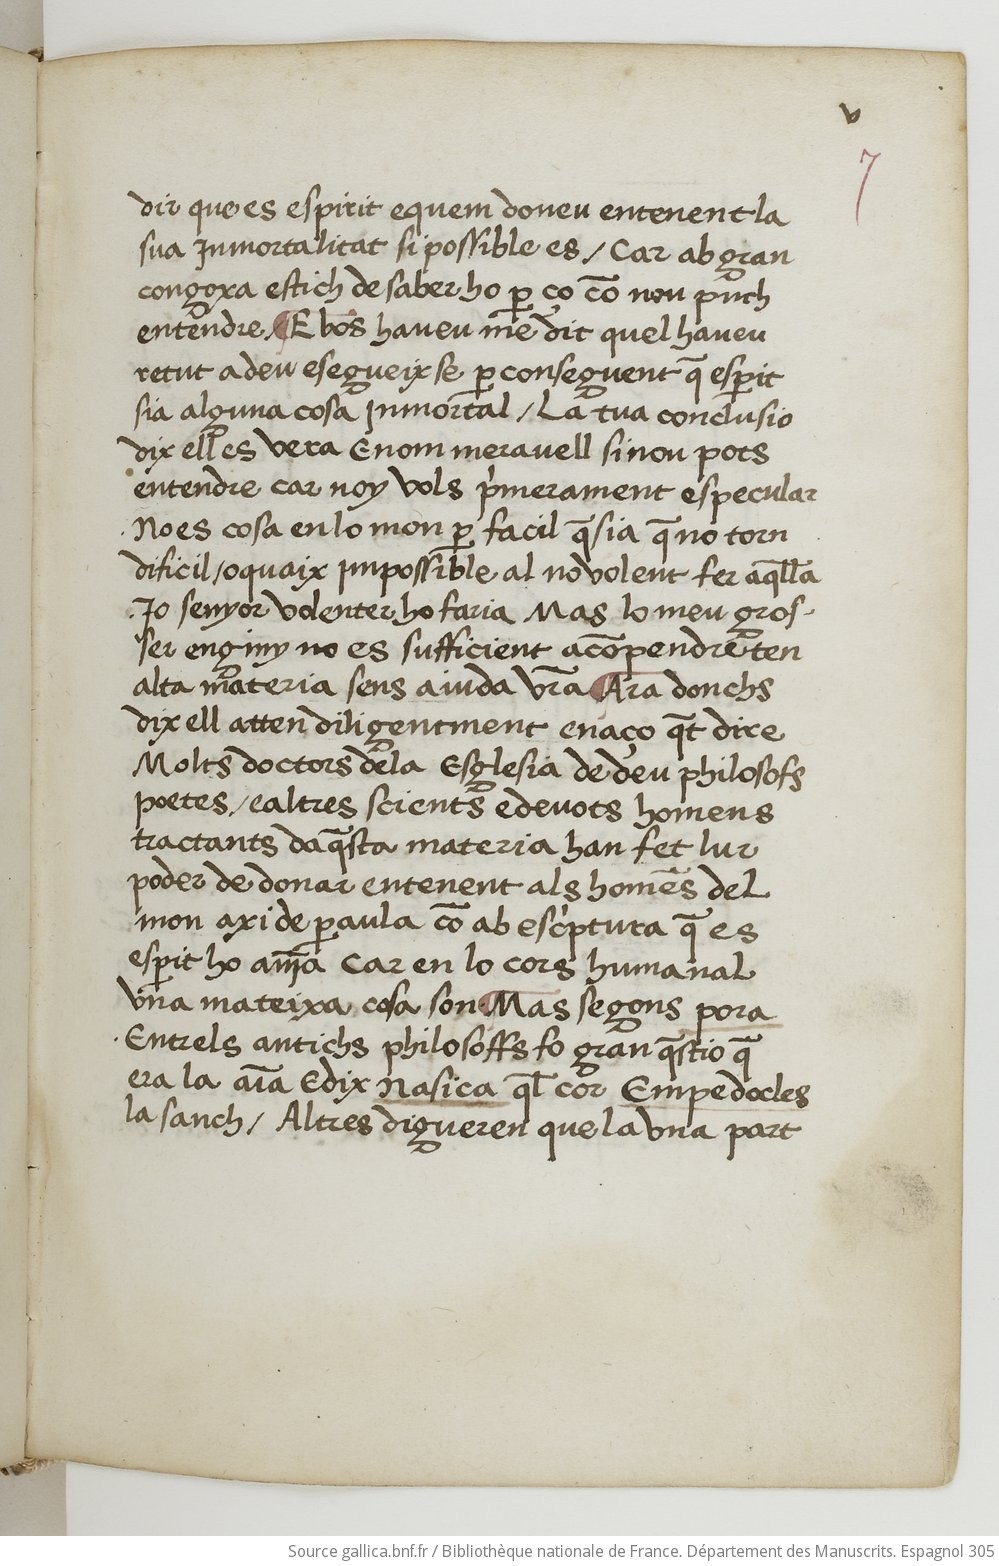 v
7
dir que es espirit e quem doneu entenent la
sua Inmortalitat si possible es / Car ab gran
congoxa estich de saber ho ꝑ ço cō nou puch
entendre / E vos haveu mē dit quel haveu
retut a deu e segueix se ꝑ conseguent q̄ esꝑit
sia alguna cosa Inmortal / La tua conclusio
dix ell es vera E nom meravell si nou pots
entendre car noy vols p̓merament especular
No es cosa en lo mon ꝑ facil q̄ sia q̄ no torn
dificil / o quaix Impossible al no volent fer aq̄lla
Io senyor volenter ho faria Mas lo meu gros-
ser enginy no es sufficient a cōpendre ten
alta materia sens aiuda vr̄a Ara donchs
dix ell atten diligentment en aço q̄t dire
Molts doctors de la Esglesia de deu philosofs
poetes / e altres scients e devots homens
tractants daq̄sta materia han fet lur
poder de donar entenent als homēs del
mon axi de ꝑaula cō ab esc̓ptura q̄ es
esꝑit ho aīa Car en lo cors humanal
vna mateixa cosa son Mas segons pora
Entrels antichs philosoffs fo gran q̄stio q̄
era la aīa E dix Nasica q̄l cor Empedocles
la sanch / Altres digueren que la vna part
Source gallica.bnf.fr / Bibliothèque nationale de France. Département des Manuscrits. Espagnol 305